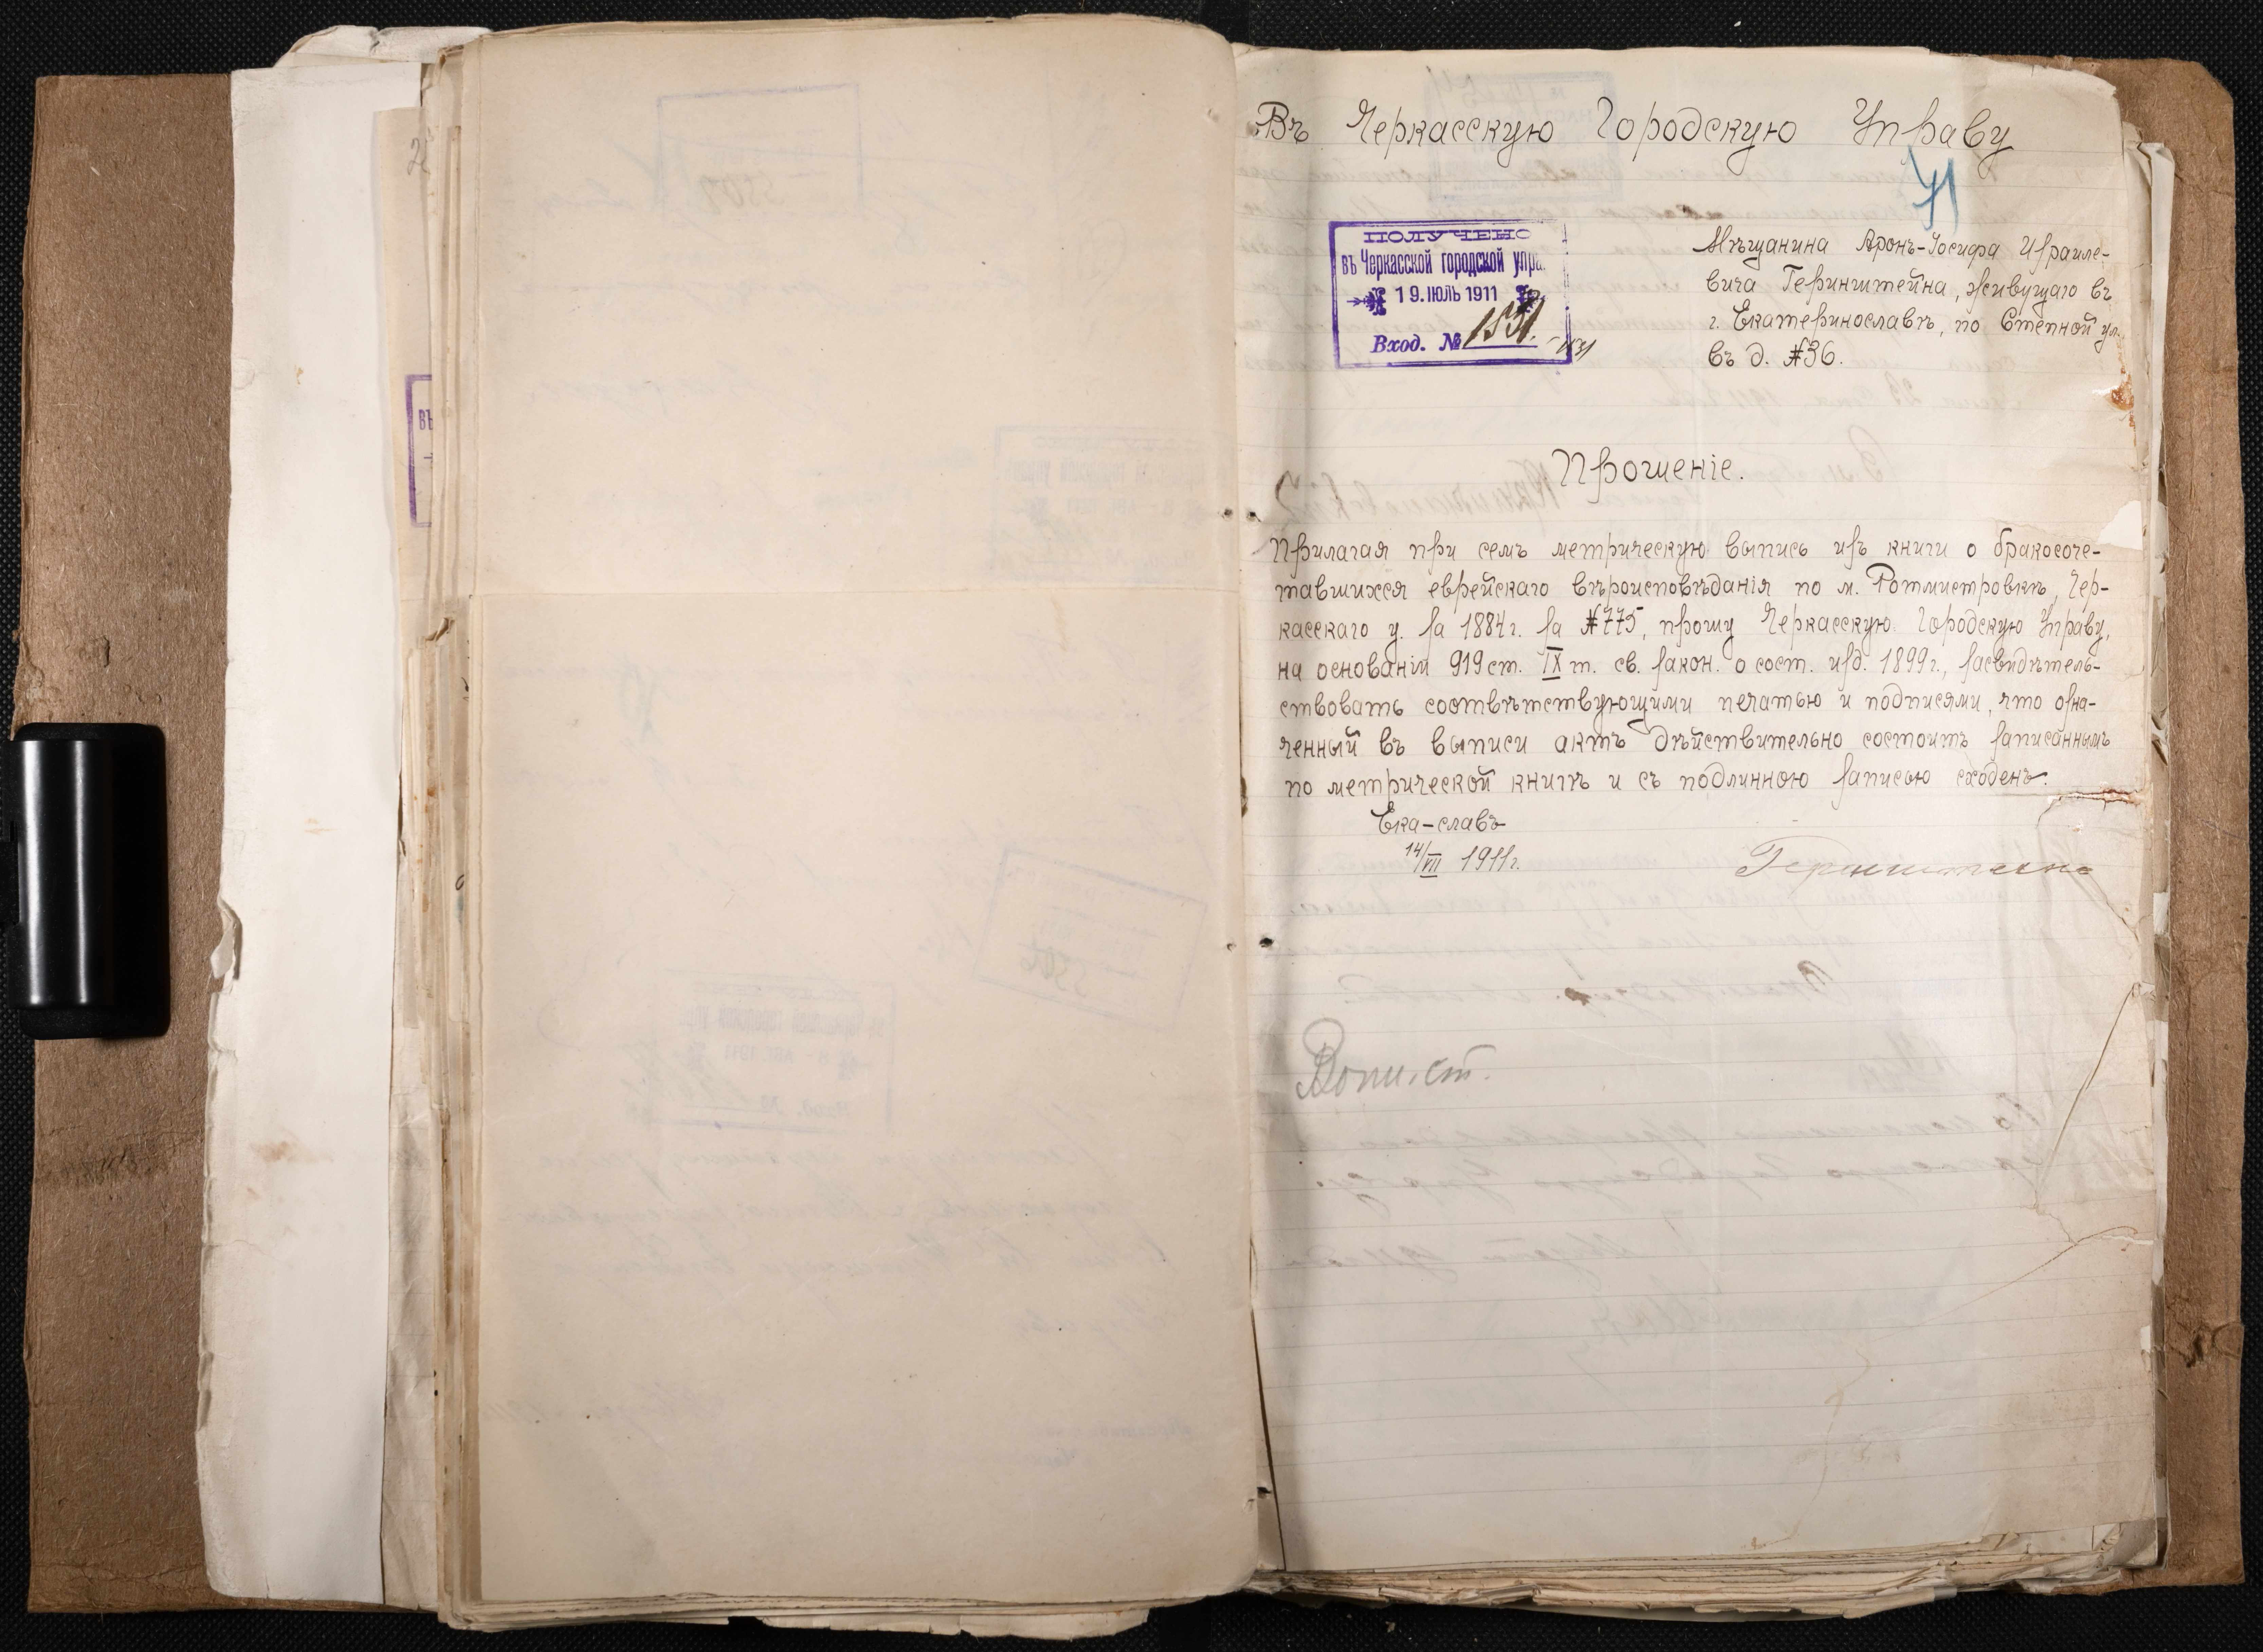 Въ Черкасскую Городскую Управу
71
ПОЛУЧЕНО
въ Черкасской городской упра.
19. ІЮЛЬ 1911
Вход. № 1531.
1531
Мѣщанина Аронъ-Іосифа Израиле-
вича Геринштейна, живущаго въ
г. Екатеринославѣ, по Степной ул.
въ д. №36.
Прошеніе.
Прилагая при семъ метрическую выпись изъ книги о бракосоче-
тавшихся еврейскаго вѣроисповѣданія по м. Ротмистровкѣ, Чер-
касскаго у. за 1884 г. за №775, прошу Черкасскую Городскую Управу,
на основаніи 919 ст. IX т. св. закон. о сост. изд. 1899 г., засвидѣтель-
ствовать соотвѣтствующими печатью и подписями, что озна-
ченный въ выписи актъ дѣйствительно состоитъ записаннымъ
по метрической книгѣ и съ подлинною записью сходенъ.
Ека-славъ
14/VII 1911 г.
Геринштейнъ
въ